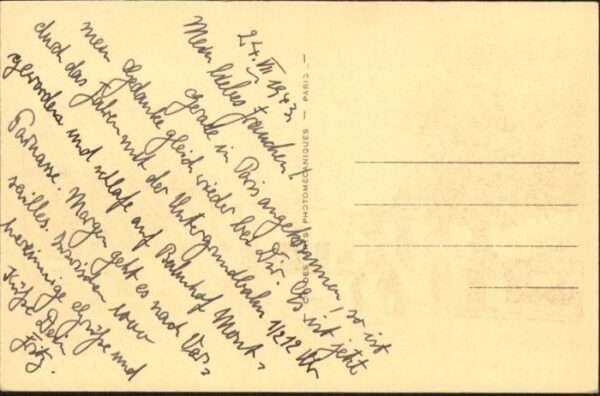 24. VII 1943,
Mein liebes Frauchen!
Gerade in Paris angekommen, so ist
mein Gedanke gleich wieder bei Dir. Es ist jetzt
durch das Fahren mit der Untergrundbahn 1/2 12 Uhr
geworden und schlafe auf Bahnhof Mont-
Parnasse. Morgen geht es nach Ver-
sailles. 
herzinnige Grüße und
Küße Dein
Fritz.
PHOTOMÉCANIQUES — PARIS —